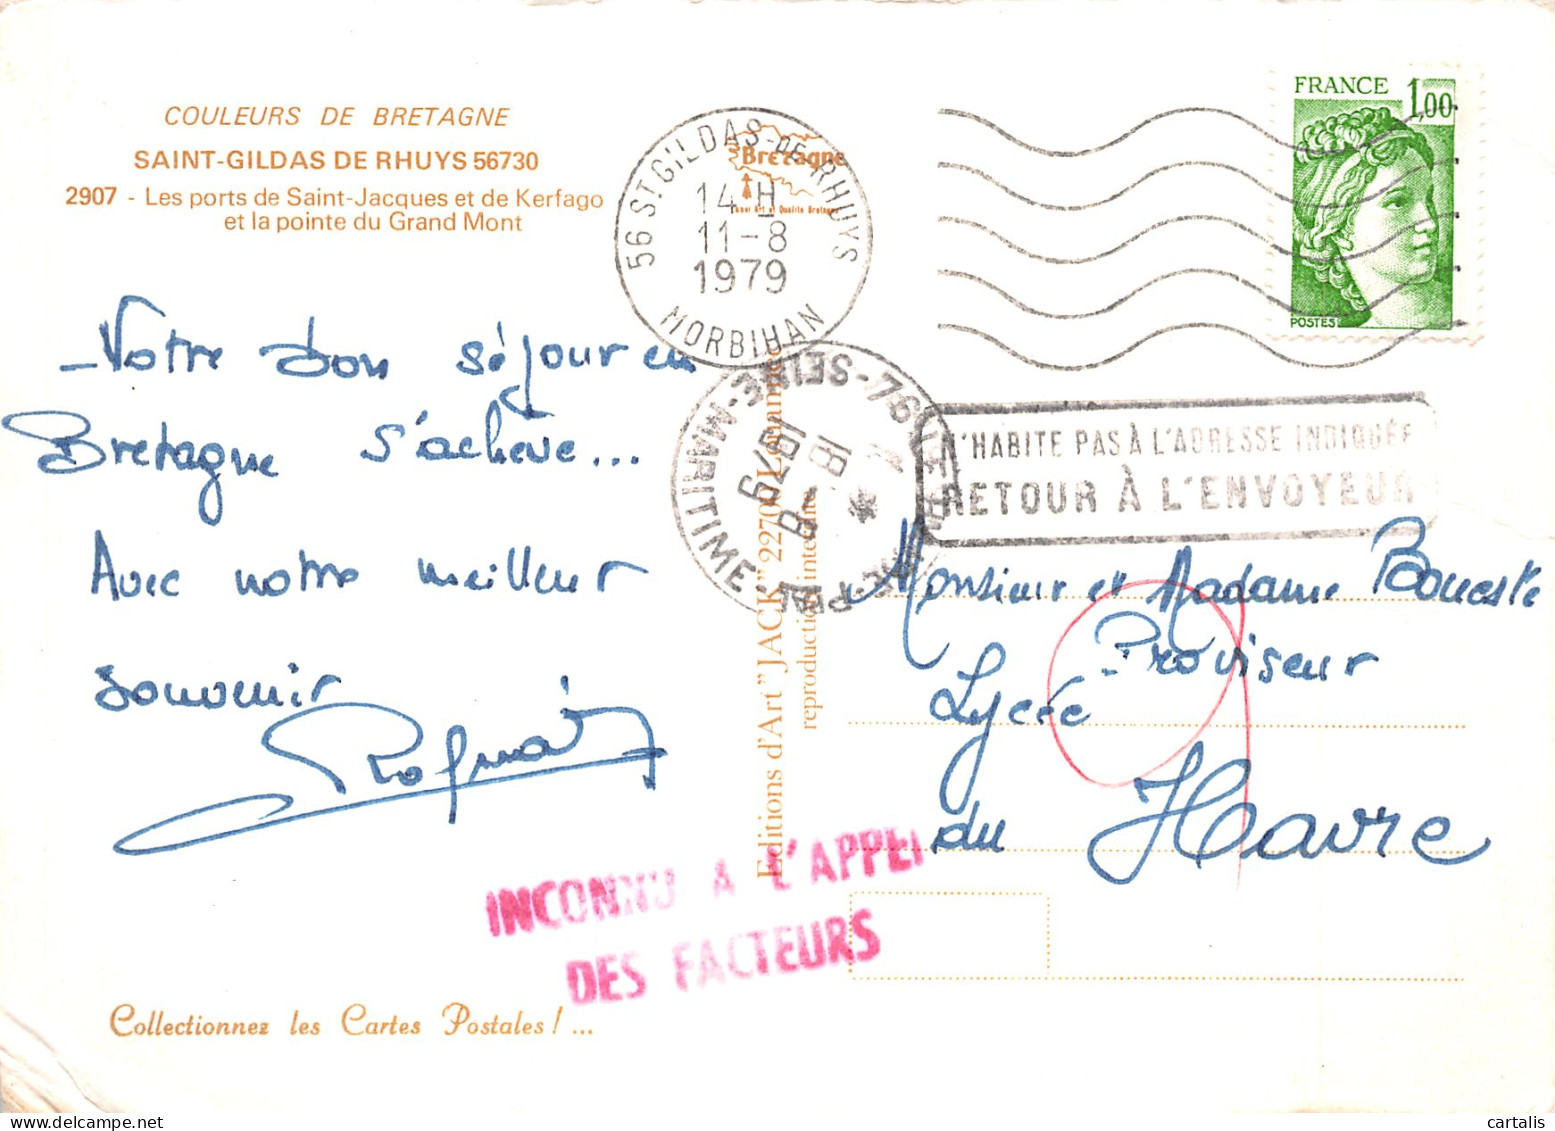 COULEURS DE BRETAGNE
SAINT-GILDAS DE RHUYS 56730
2907 - Les ports de Saint-Jacques et de Kerfago
et la pointe du Grand Mont
56 ST GILDAS-DE-RHUYS
14 H
11-8
1979
MORBIHAN
Bretagne
FRANCE 1,00
POSTES
- Votre bon séjour en
Bretagne s'achève...
Avec notre meilleur
souvenir
76 - SEINE-MARITIME
18 - 8
1979
N'HABITE PAS À L'ADRESSE INDIQUÉE
RETOUR À L'ENVOYEUR
Editions d'Art "JACK" 22700 Louannec
reproduction interdite
Monsieur et Madame
Proviseur
Lycée
du Havre
INCONNU A L'APPEL
DES FACTEURS
Collectionnez les Cartes Postales ! ...
cartalis